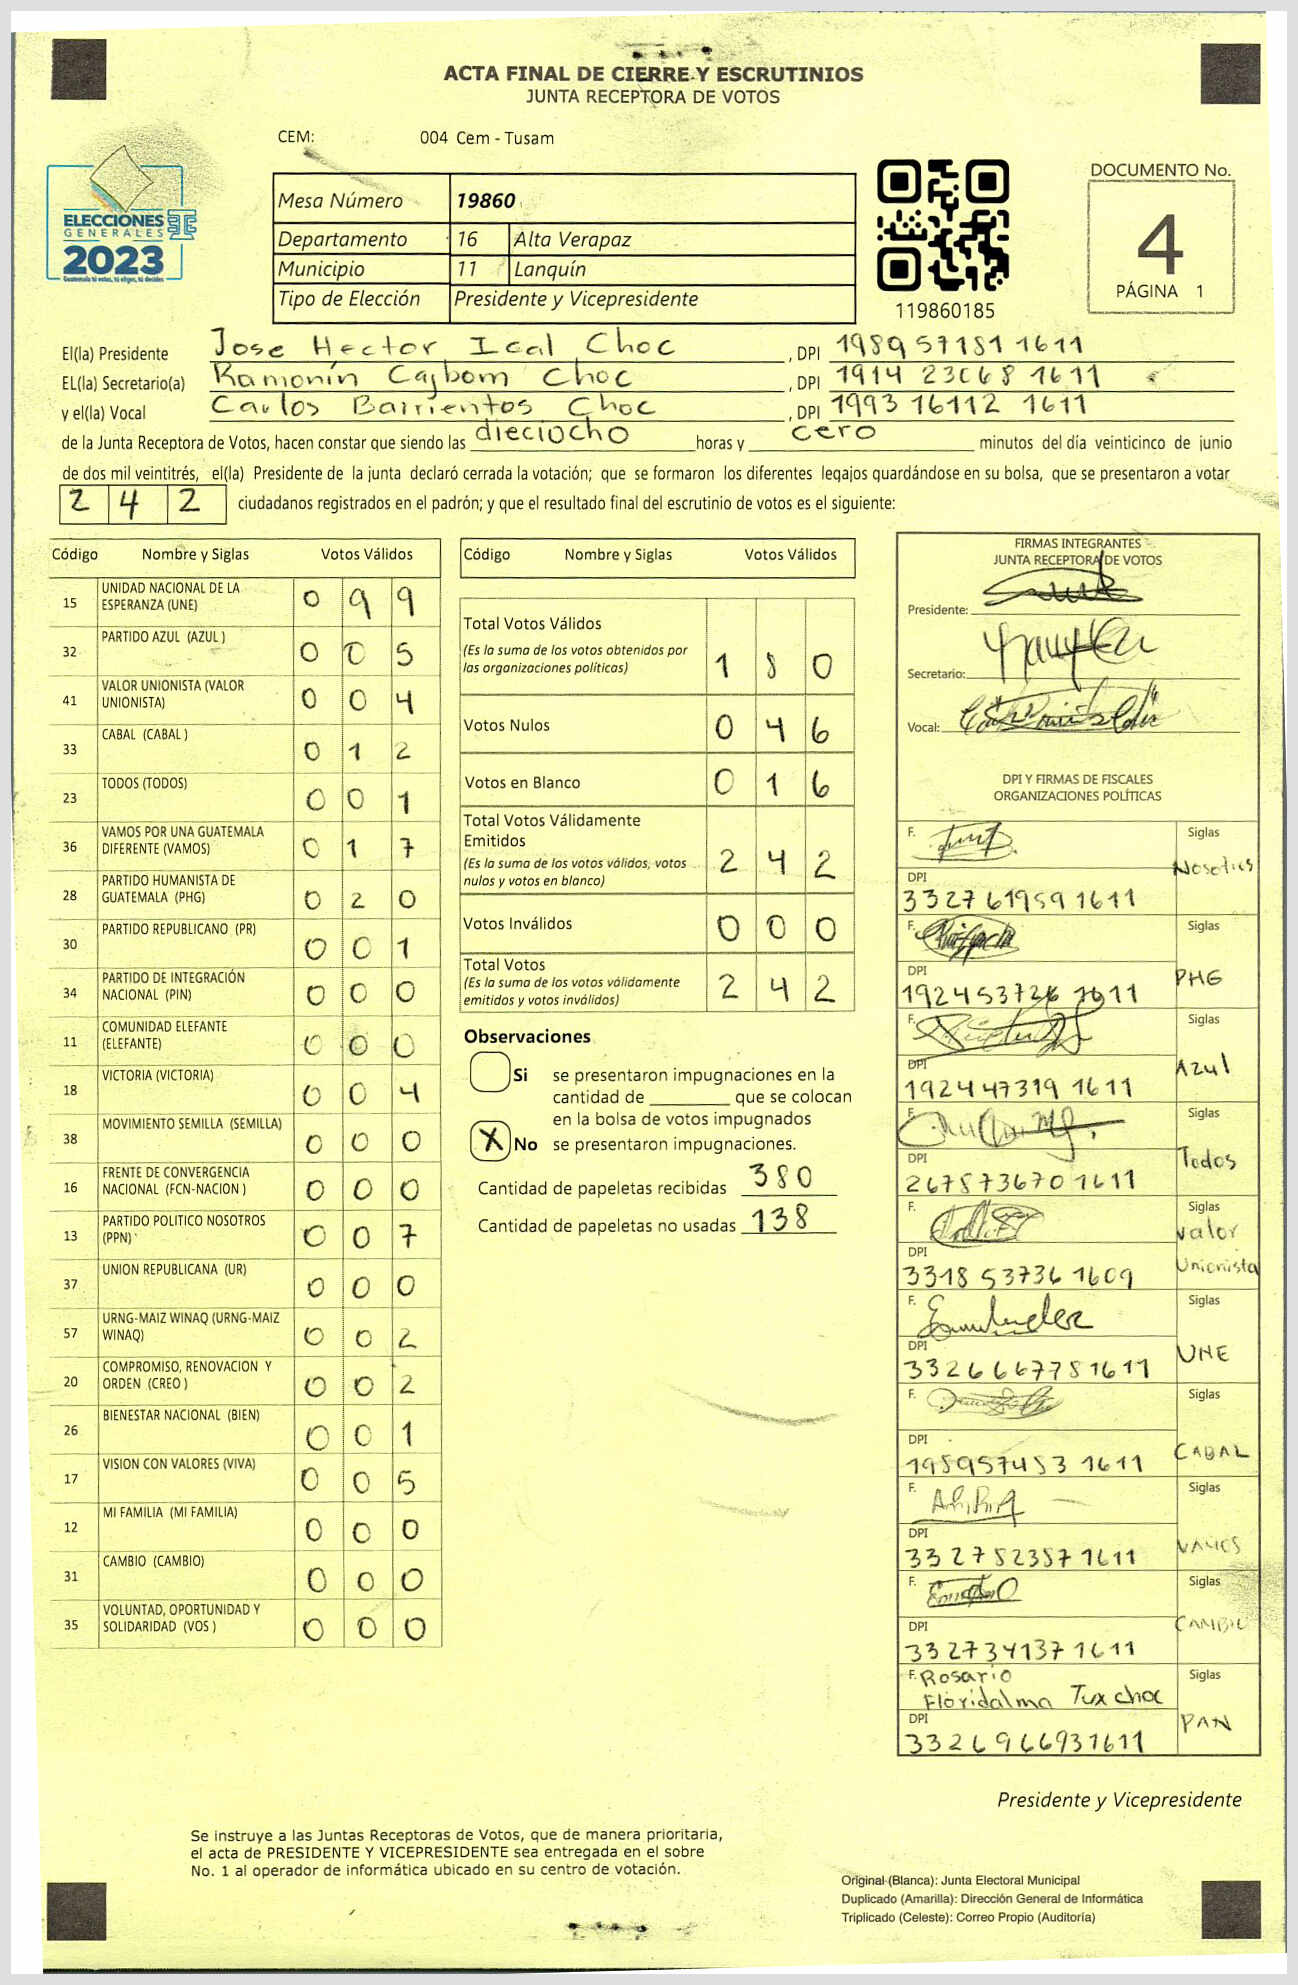 ACTA FINAL DE CIERRE Y ESCRUTINIOS
JUNTA RECEPTORA DE VOTOS
CEM: 004 Cem - Tusam
ELECCIONES
GENERALES
2023
Guatemala tú votas, tú eliges, tú decides
Mesa Número 19860
Departamento 16 Alta Verapaz
Municipio 11 Lanquín
Tipo de Elección Presidente y Vicepresidente
119860185
DOCUMENTO No.
4
PÁGINA 1
El(la) Presidente Jose Hector Ical Choc, DPI 1989 57181 1611
EL(la) Secretario(a) Ramonín Cajbom Choc, DPI 1914 23068 1611
y el(la) Vocal Carlos Barrientos Choc, DPI 1993 16112 1611
de la Junta Receptora de Votos, hacen constar que siendo las dieciocho horas y cero minutos del día veinticinco de junio
de dos mil veintitrés, el(la) Presidente de la junta declaró cerrada la votación; que se formaron los diferentes legajos guardándose en su bolsa, que se presentaron a votar
2 4 2 ciudadanos registrados en el padrón; y que el resultado final del escrutinio de votos es el siguiente:
Código Nombre y Siglas Votos Válidos
15 UNIDAD NACIONAL DE LA ESPERANZA (UNE) 0 9 9
32 PARTIDO AZUL (AZUL ) 0 0 5
41 VALOR UNIONISTA (VALOR UNIONISTA) 0 0 4
33 CABAL (CABAL ) 0 1 2
23 TODOS (TODOS) 0 0 1
36 VAMOS POR UNA GUATEMALA DIFERENTE (VAMOS) 0 1 7
28 PARTIDO HUMANISTA DE GUATEMALA (PHG) 0 2 0
30 PARTIDO REPUBLICANO (PR) 0 0 1
34 PARTIDO DE INTEGRACIÓN NACIONAL (PIN) 0 0 0
11 COMUNIDAD ELEFANTE (ELEFANTE) 0 0 0
18 VICTORIA (VICTORIA) 0 0 4
38 MOVIMIENTO SEMILLA (SEMILLA) 0 0 0
16 FRENTE DE CONVERGENCIA NACIONAL (FCN-NACION ) 0 0 0
13 PARTIDO POLITICO NOSOTROS (PPN) 0 0 7
37 UNION REPUBLICANA (UR) 0 0 0
57 URNG-MAIZ WINAQ (URNG-MAIZ WINAQ) 0 0 2
20 COMPROMISO, RENOVACION Y ORDEN (CREO ) 0 0 2
26 BIENESTAR NACIONAL (BIEN) 0 0 1
17 VISION CON VALORES (VIVA) 0 0 5
12 MI FAMILIA (MI FAMILIA) 0 0 0
31 CAMBIO (CAMBIO) 0 0 0
35 VOLUNTAD, OPORTUNIDAD Y SOLIDARIDAD (VOS ) 0 0 0
Código Nombre y Siglas Votos Válidos
Total Votos Válidos
(Es la suma de los votos obtenidos por
las organizaciones politicas) 1 8 0
Votos Nulos 0 4 6
Votos en Blanco 0 1 6
Total Votos Válidamente
Emitidos
(Es la suma de los votos válidos, votos
nulos y votos en blanco) 2 4 2
Votos Inválidos 0 0 0
Total Votos
(Es la suma de los votos válidamente
emitidos y votos inválidos) 2 4 2
Observaciones
Si se presentaron impugnaciones en la
cantidad de ________ que se colocan
en la bolsa de votos impugnados
X No se presentaron impugnaciones.
Cantidad de papeletas recibidas 380
Cantidad de papeletas no usadas 138
FIRMAS INTEGRANTES
JUNTA RECEPTORA DE VOTOS
Presidente:
Secretario:
Vocal:
DPI Y FIRMAS DE FISCALES
ORGANIZACIONES POLÍTICAS
F. Siglas
Nosotros
DPI
33276 1959 1611
F. Siglas
PHG
DPI
192453726 1611
F. Siglas
Azul
DPI
192447319 1611
F. Siglas
Todos
DPI
267873670 1611
F. Siglas
valor
Unionista
DPI
3318 53736 1609
F. Siglas
UNE
DPI
3326667781611
F. Siglas
CABAL
DPI
195957453 1611
F. Siglas
VAMOS
DPI
332752357 1611
F. Siglas
CAMBIO
DPI
332734137 1611
F. Rosario
Floridalma Tux choc
Siglas
PAN
DPI
3326966931611
Presidente y Vicepresidente
Se instruye a las Juntas Receptoras de Votos, que de manera prioritaria,
el acta de PRESIDENTE Y VICEPRESIDENTE sea entregada en el sobre
No. 1 al operador de informática ubicado en su centro de votación.
Original (Blanca): Junta Electoral Municipal
Duplicado (Amarilla): Dirección General de Informática
Triplicado (Celeste): Correo Propio (Auditoría)